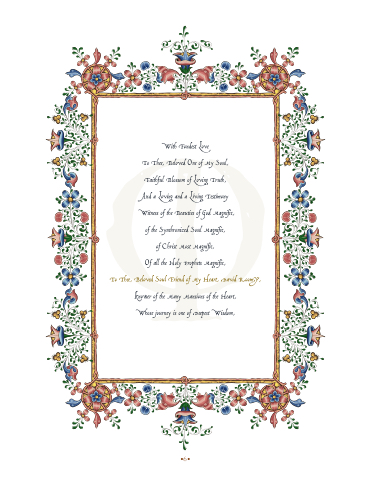 With Fondest Love
To Thee, Beloved One of My Soul,
Faithful Blossom of Loving Truth,
And a Loving and a Living Testimony
Witness of the Beauties of God Magnific,
of the Synchronized Soul Magnific,
of Christ Most Magnific,
Of all the Holy Prophets Magnific,
To Thee, Beloved Soul Friend of My Heart,
Knower of the Many Mansions of the Heart,
Whose journey is one of conquest Wisdom,